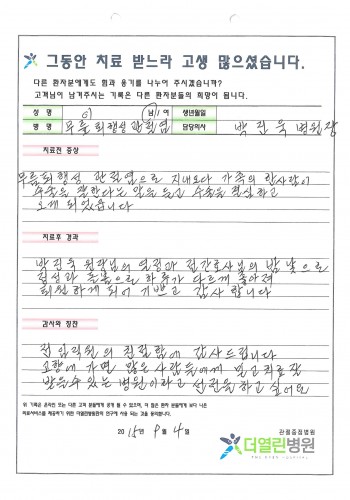 그동안 치료 받느라 고생 많으셨습니다.
다른 환자분에게도 힘과 용기를 나누어 주시겠습니까?
고객님이 남겨주시는 기록은 다른 환자분들의 희망이 됩니다.
성 명 이 남/여 생년월일
병 명 무릎퇴행성 관절염 담당의사 박진욱 병원장
치료전 증상
무릎퇴행성 관절염으로 지내오다 가족의
수술을 잘한다는 말을 듣고 수술을 결심하고
오게 되었습니다
치료후 경과
박진욱 원장님의 열정과 전간호사님의 밤 낮으로
관심과 돌봄으로 하루가 다르게 좋아져
퇴원하게 되어 기쁘고 감사합니다
감사와 칭찬
전 임직원의 친절함에 감사드립니다
고향에 가면 많은 사람들에게 믿고 치료
받을수 있는 병원이라고 선전을 하고 싶어요
위 기록은 온라인 또는 다른 고객 분들에게 공개 될 수 있으며, 더 많은 환자 분들에게 보다 나은
의료서비스를 제공하기 위한 더열린병원의 연구에 사용 되는 것을 동의합니다.
2015년 9월 4일
관절중점병원
더열린병원
THE OPEN HOSPITAL